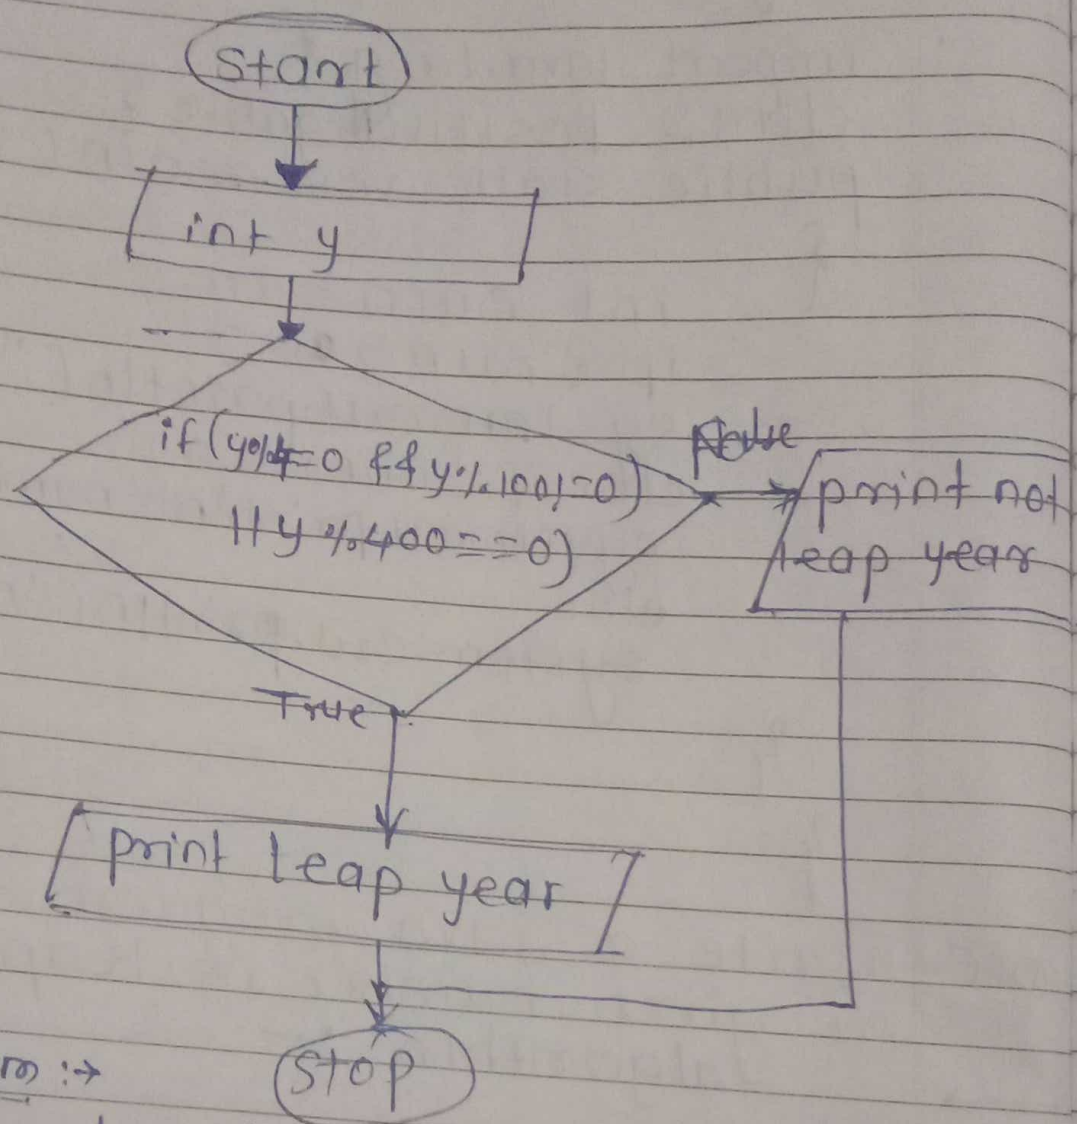 Start
int y
if (y%4=0 && y%100!=0)
|| y%400==0)
False
print not
leap year
True
print leap year
Stop
m :→